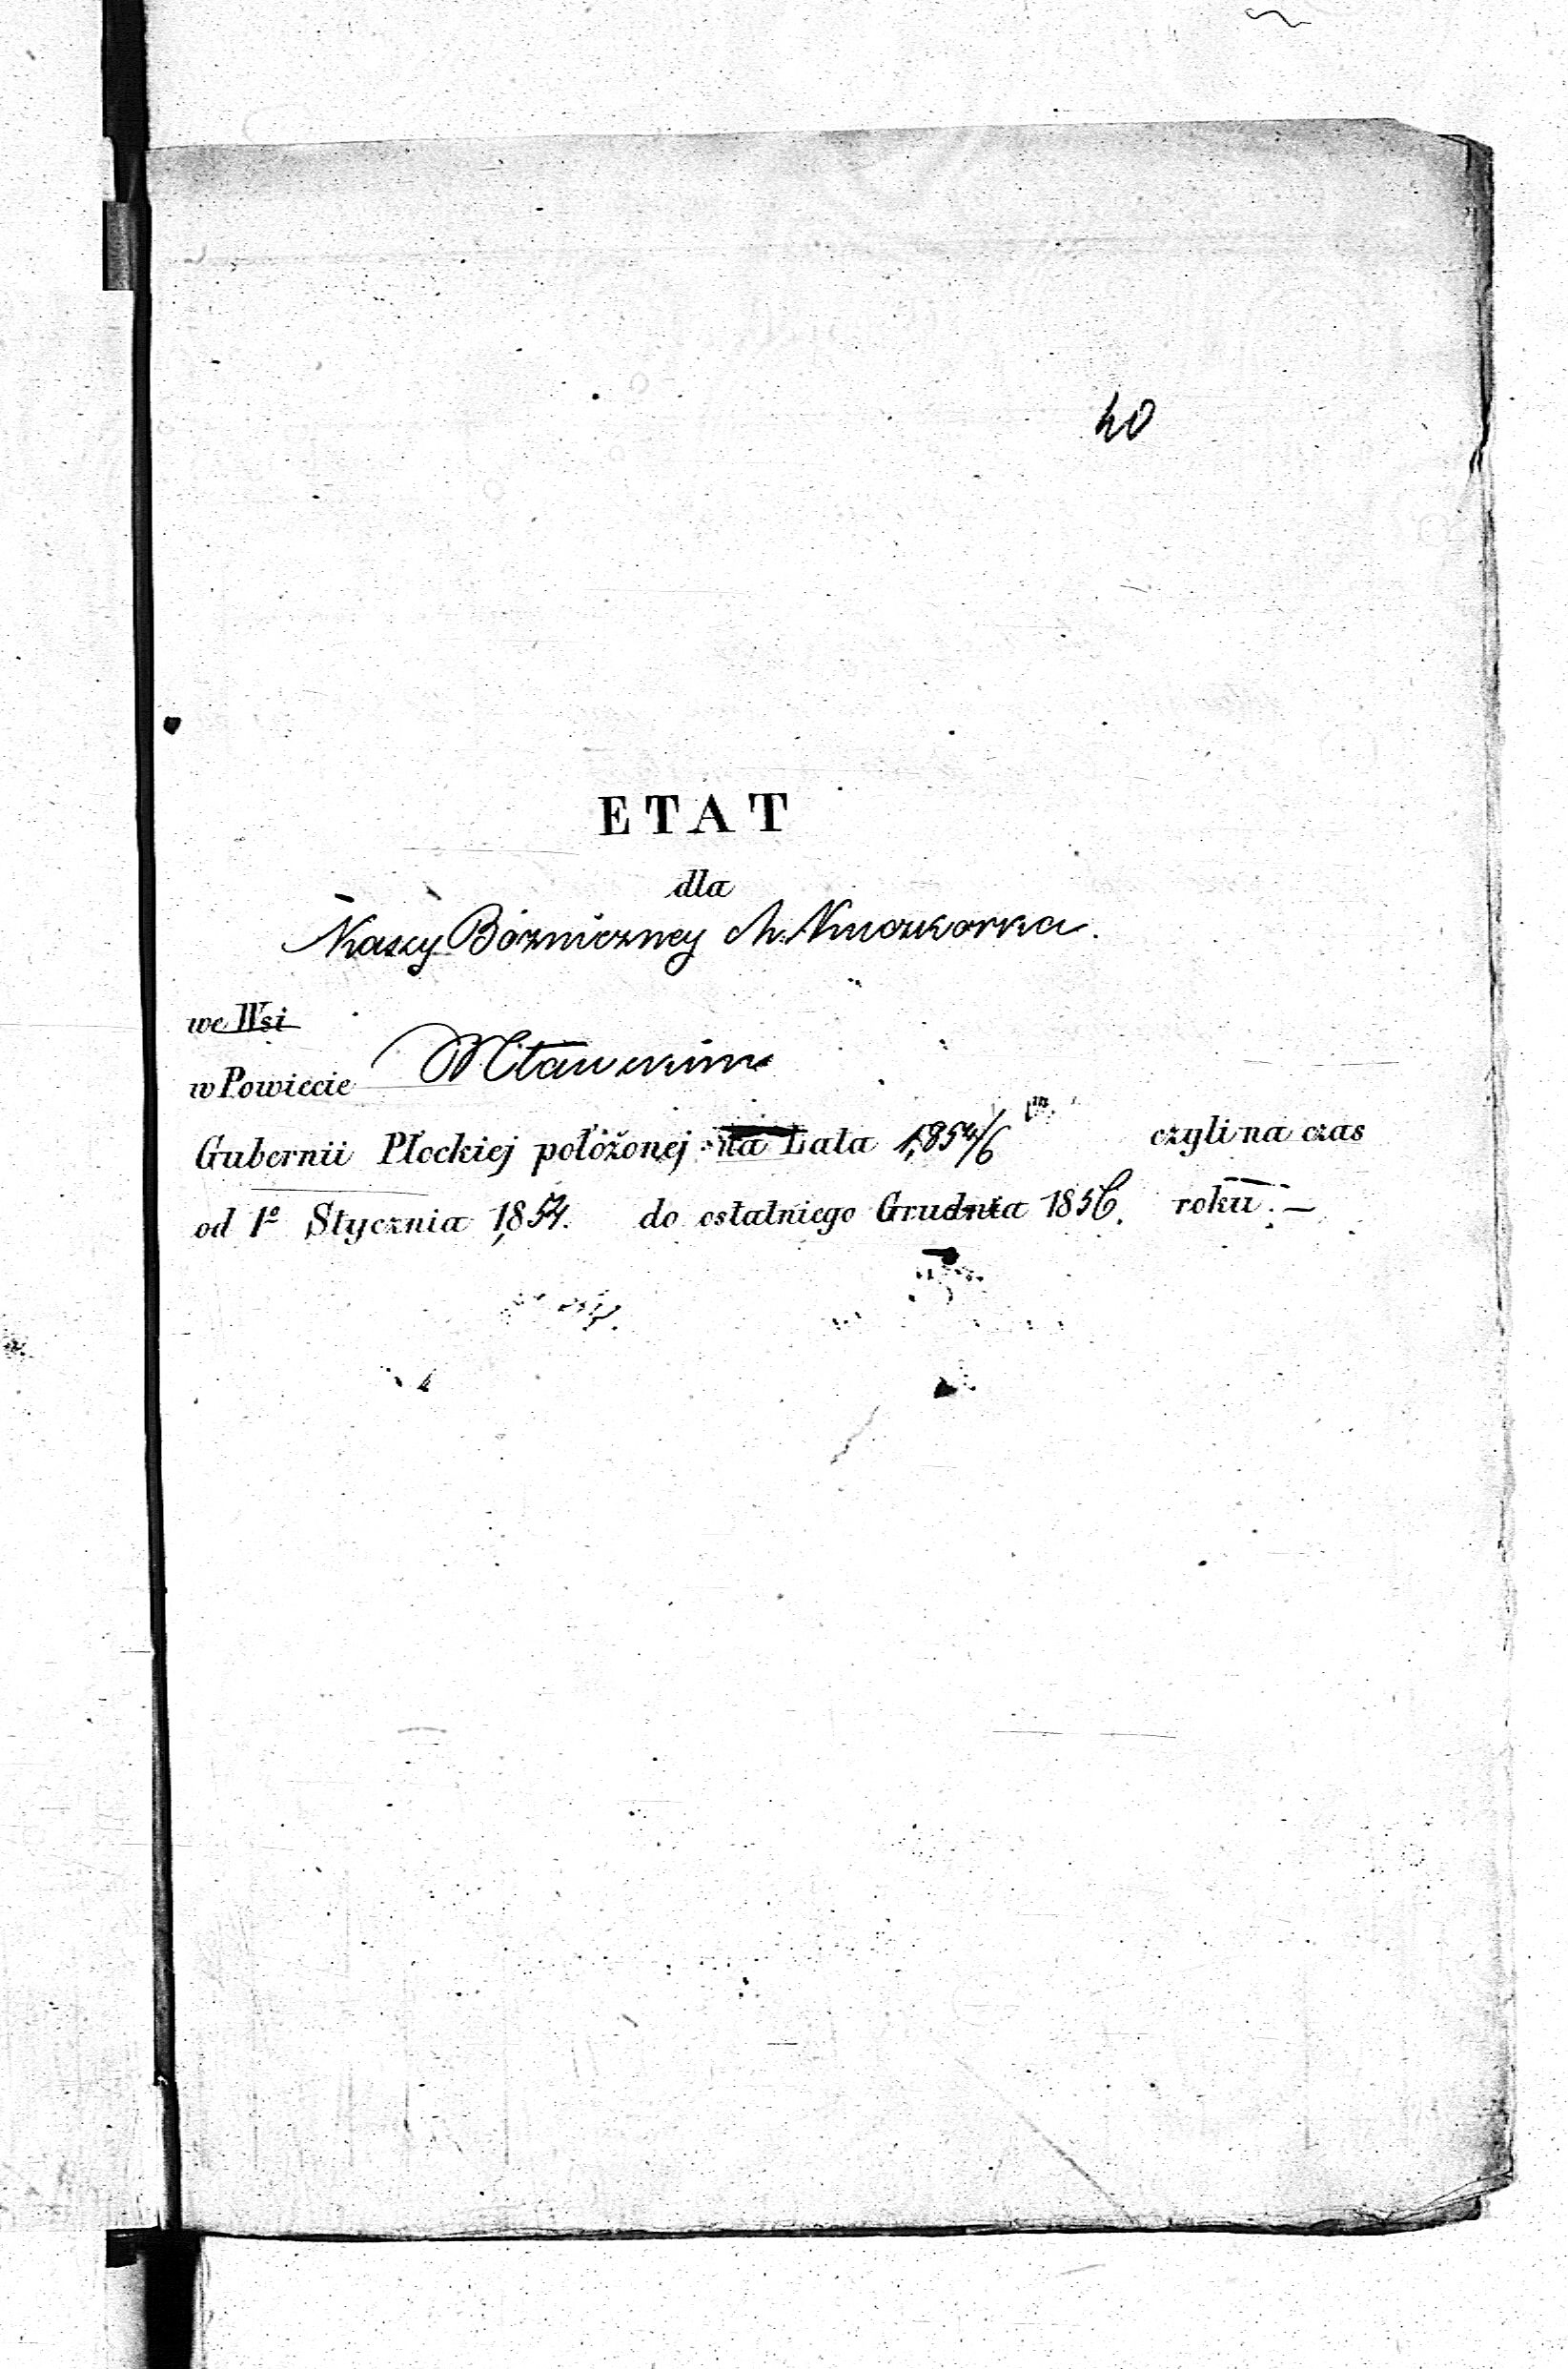 40
ETAT
dla
Kassy Bóżniczney M.
we Wsi
w Powiecie Mławskim
Gubernii Płockiej położonej na Lata 1854/6 czyli na czas
od 1º Stycznia 1854. do ostatniego Grudnia 1856. roku.—